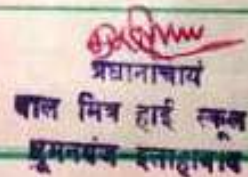 प्रधानाचार्य
बाल मित्र हाई स्कूल
धूमनगंज इलाहाबाद